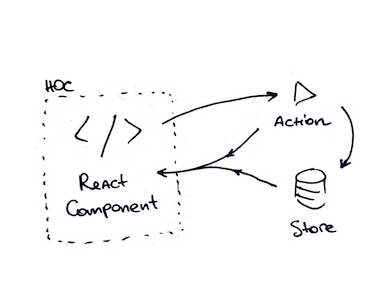 HOC
</>
React
Component
Action
Store